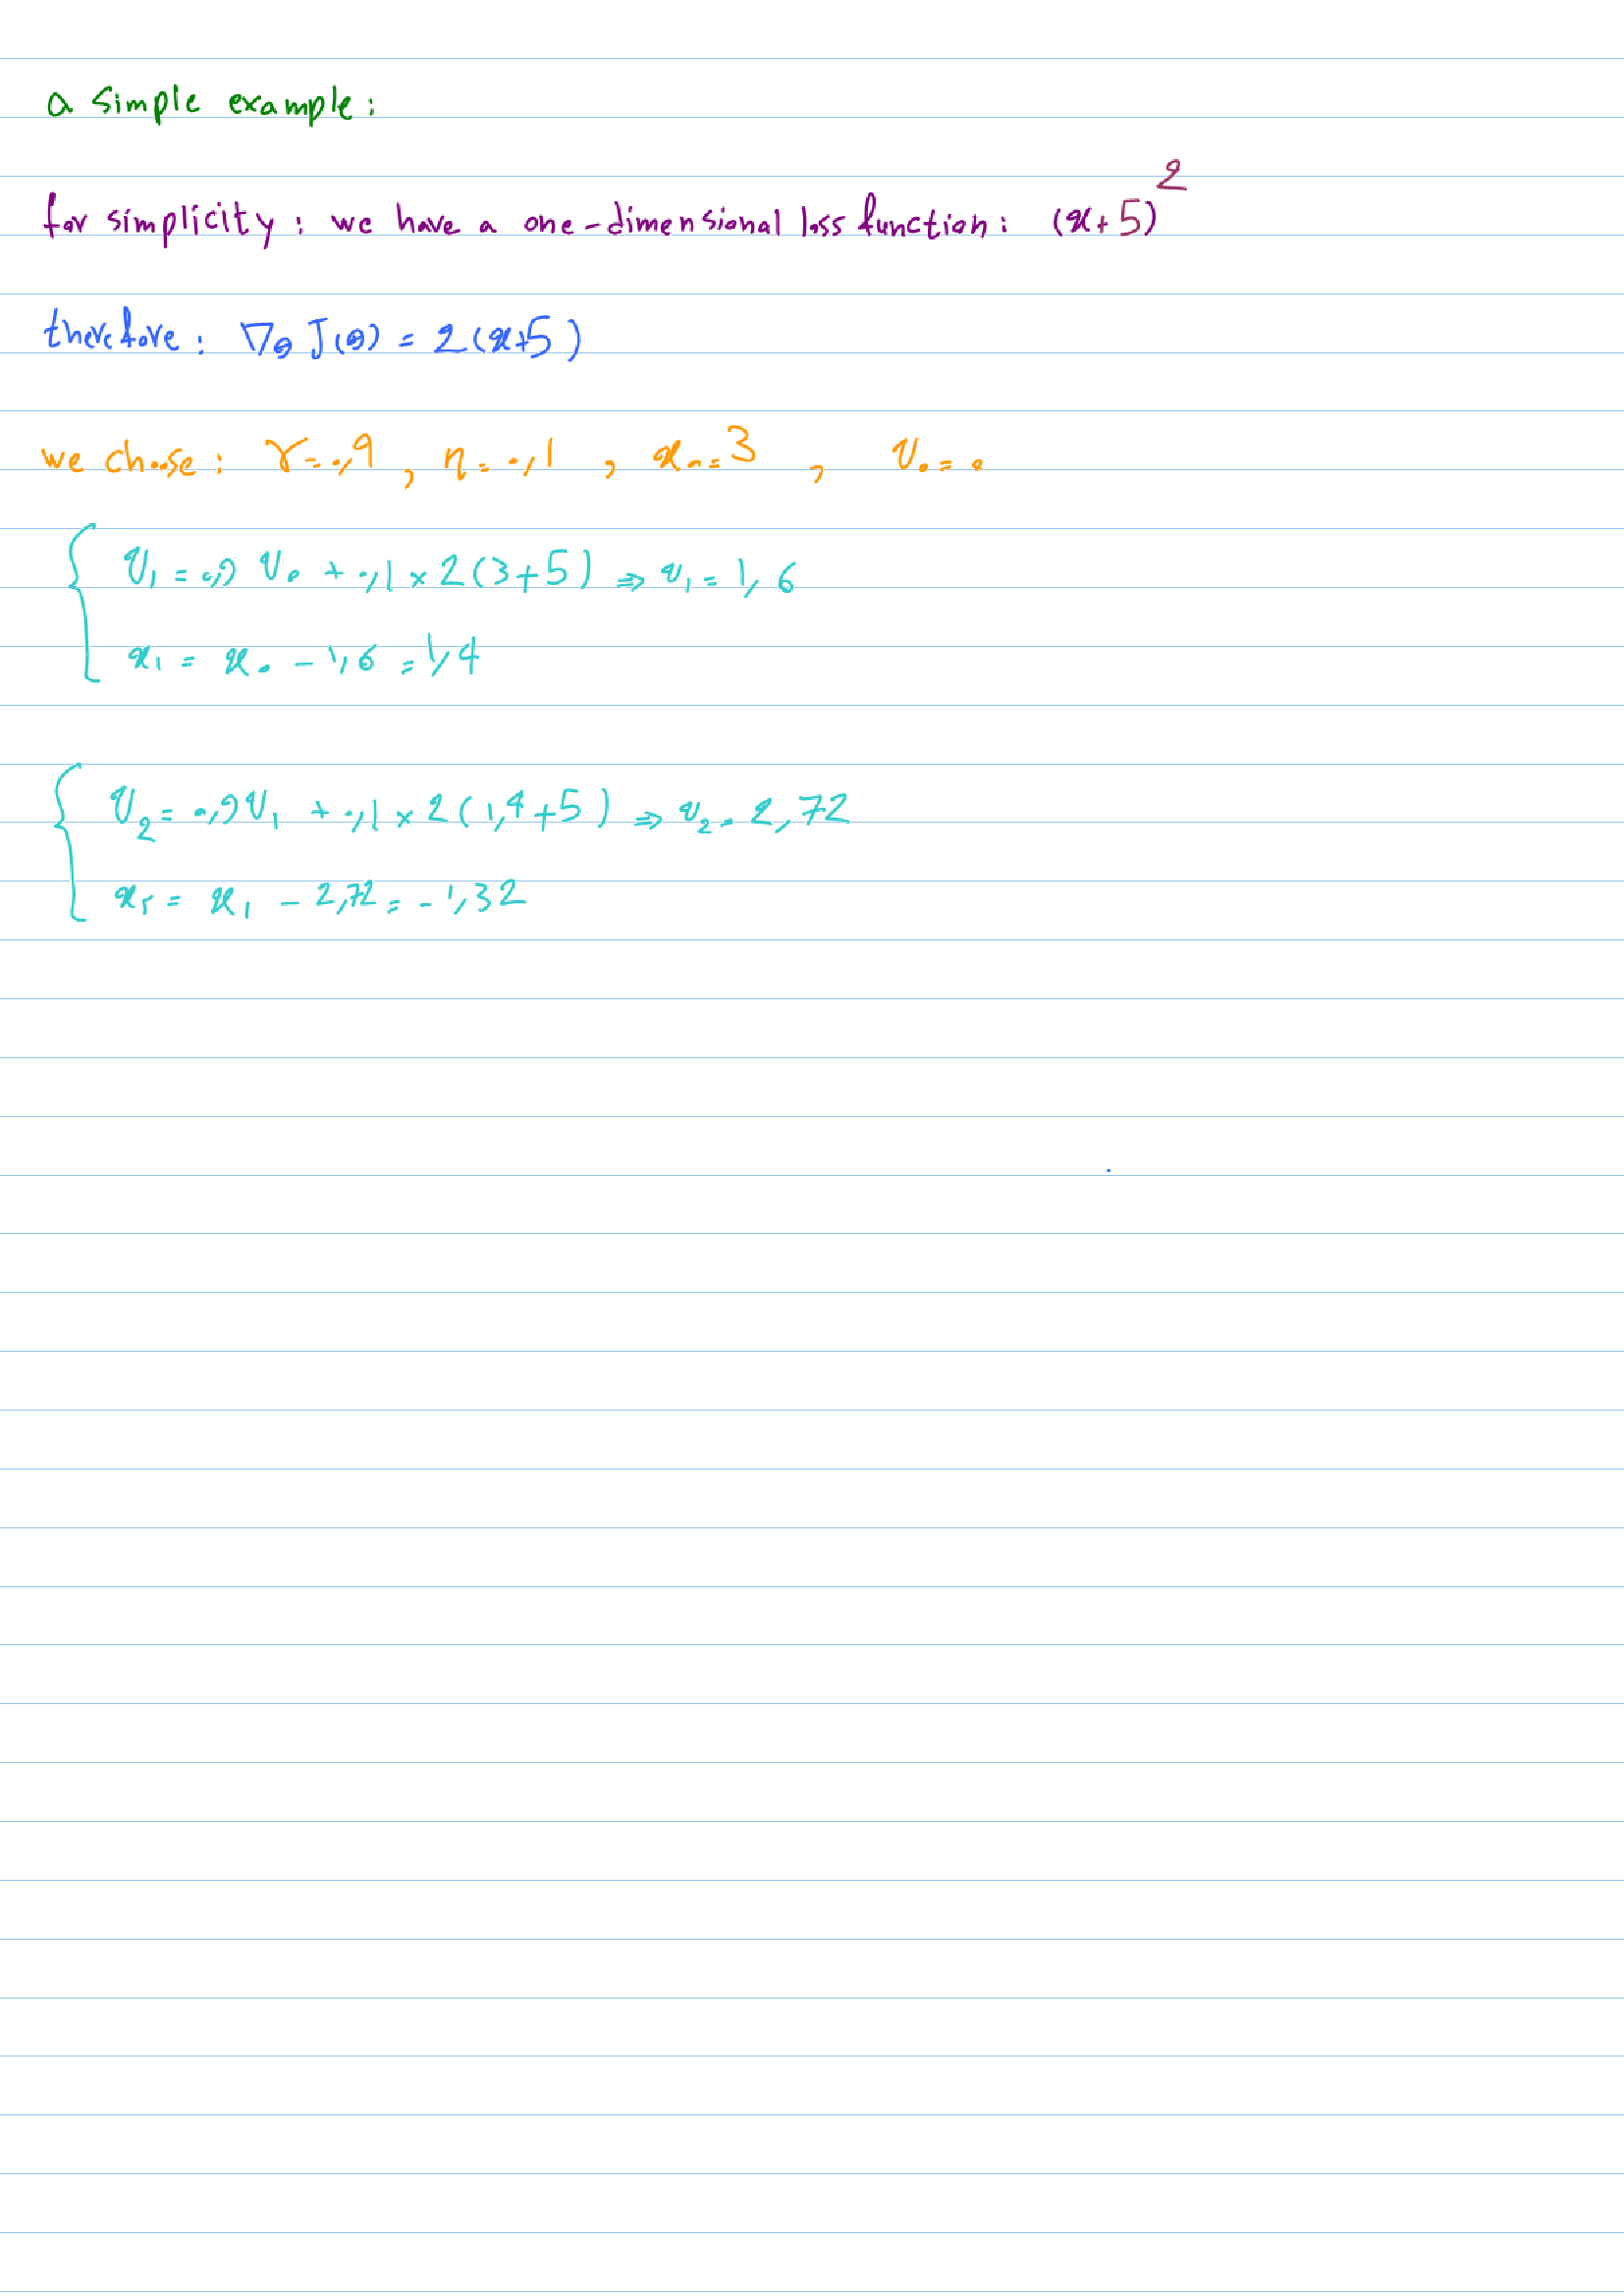 a simple example:
for simplicity: we have a one-dimensional loss function: (x+5)²
therefore: ∇θ J(θ) = 2(x+5)
we choose: γ=0,9 , η=0,1 , x₀=3 , v₀=0
v₁ = 0,9 v₀ + 0,1 × 2(3+5) ⇒ v₁ = 1,6
x₁ = x₀ - 1,6 = 1,4
v₂ = 0,9 v₁ + 0,1 × 2(1,4+5) ⇒ v₂ = 2,72
x₂ = x₁ - 2,72 = -1,32